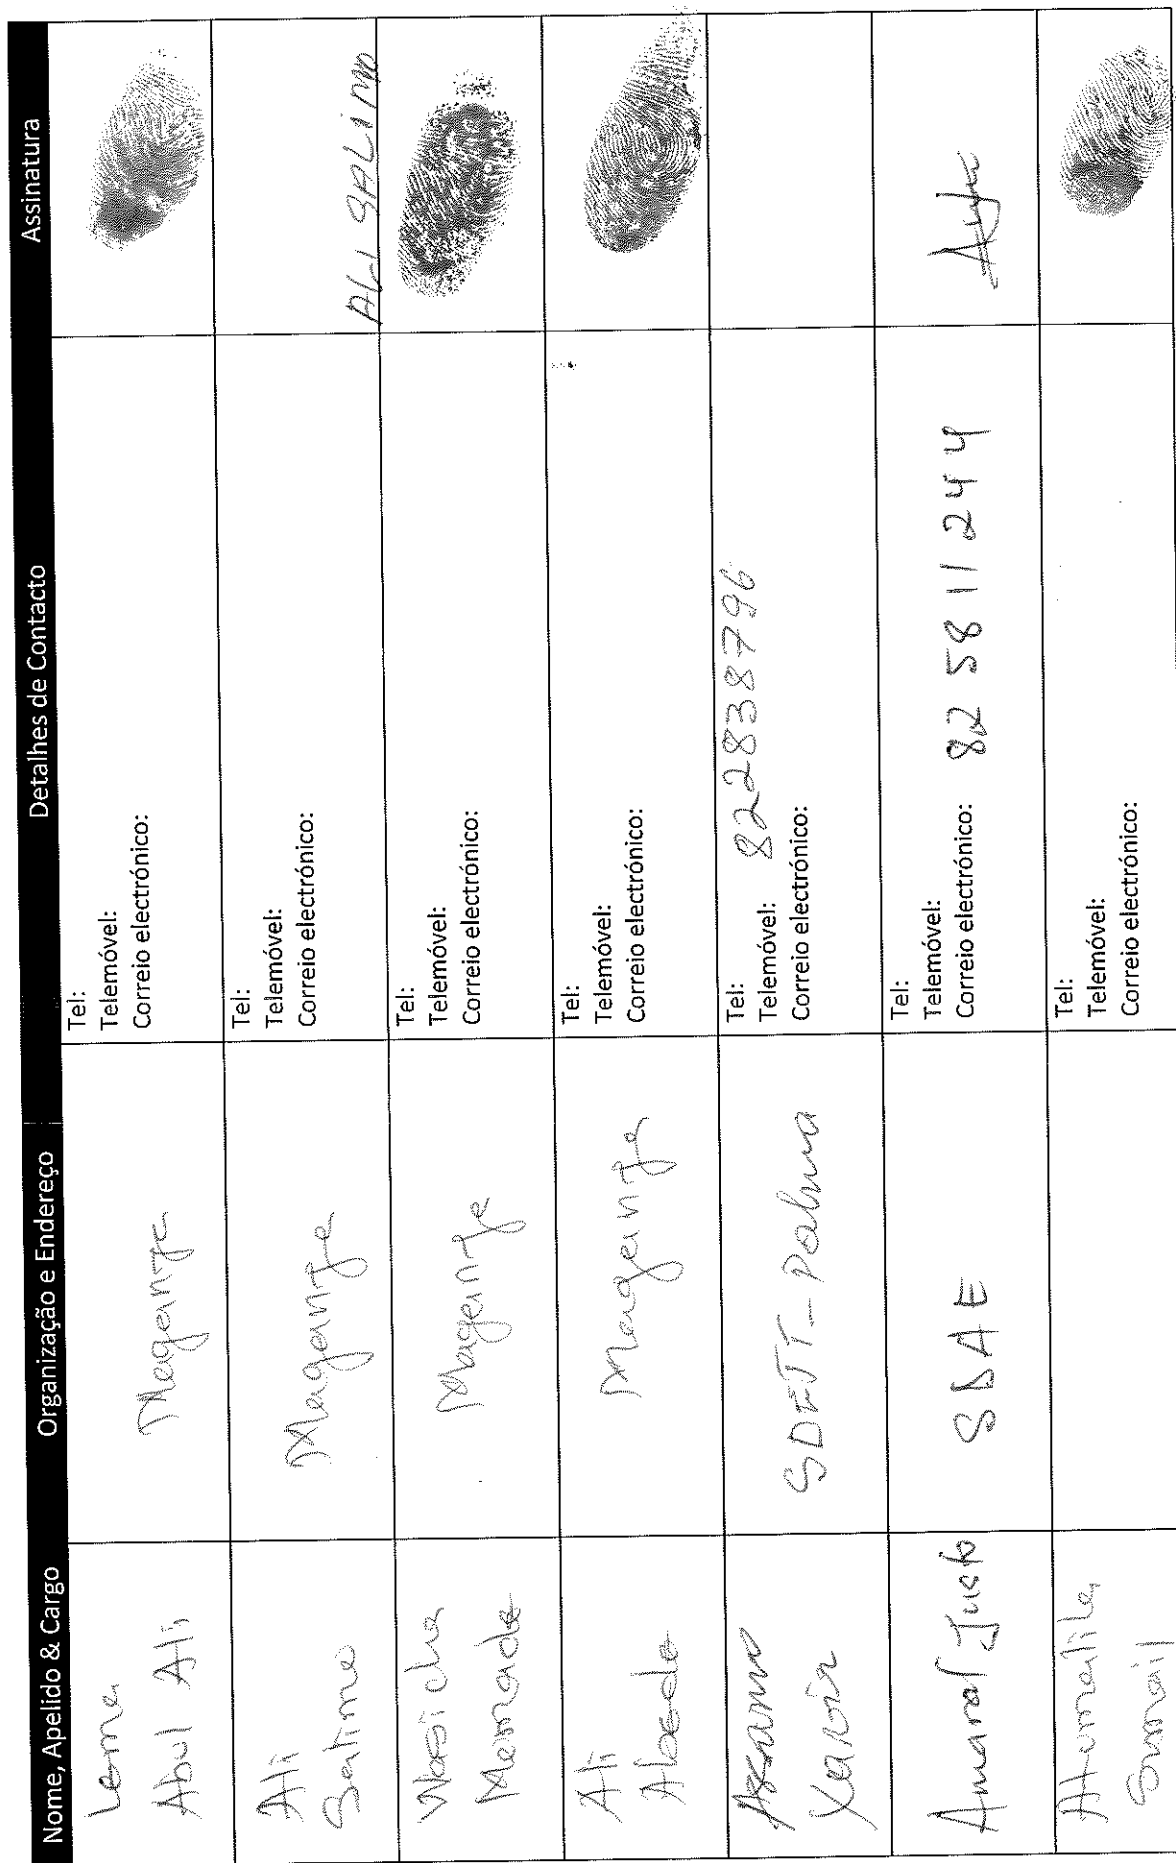 Nome, Apelido & Cargo
Organização e Endereço
Detalhes de Contacto
Assinatura
Abul Ali
Maganja
Tel:
Telemóvel:
Correio electrónico:
Ali
Salimo
Maganja
Tel:
Telemóvel:
Correio electrónico:
ALI SALIMO
Mamade
Maganja
Tel:
Telemóvel:
Correio electrónico:
Ali
Abede
Maganja
Tel:
Telemóvel:
Correio electrónico:
Assamo
Xavier
SDEJT - Palma
Tel:
Telemóvel: 822838796
Correio electrónico:
Amaral Justo
SDAE
Tel:
Telemóvel:
Correio electrónico: 82 5811244
Tel:
Telemóvel:
Correio electrónico: